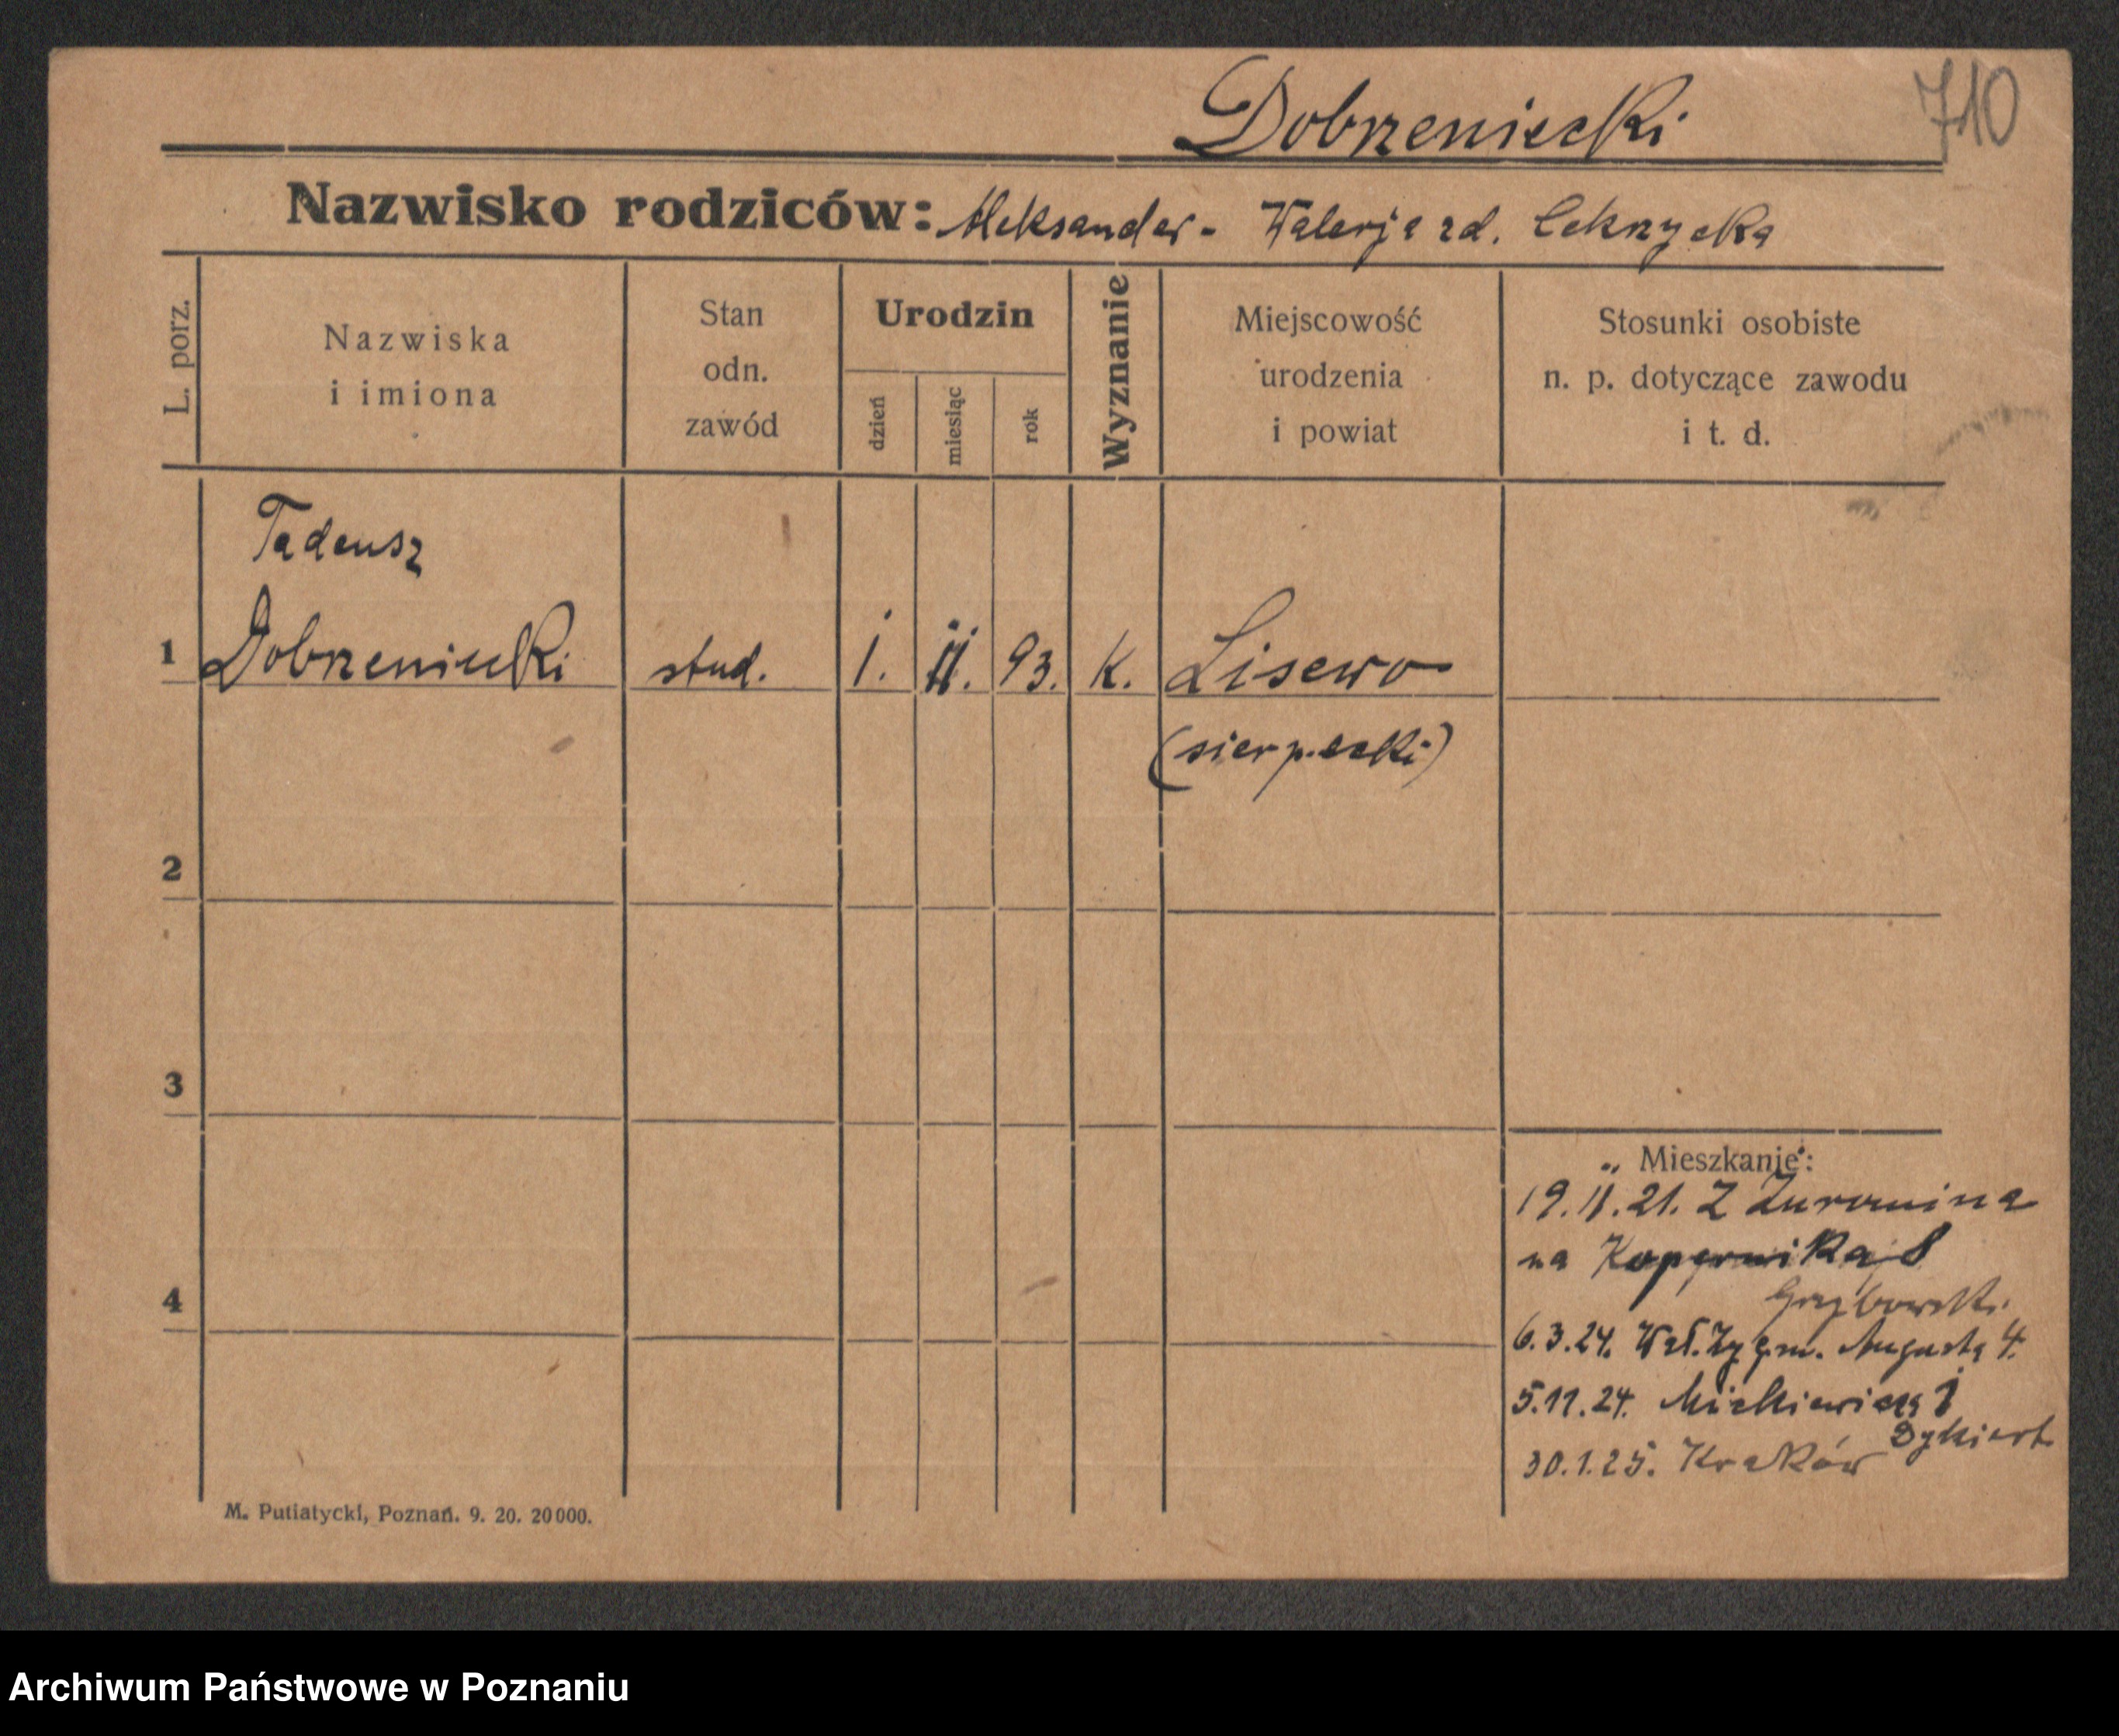 Dobrzeniecki
710
Nazwisko rodziców: Aleksander - Walerja zd. Cekrzycka
L. porz.
Nazwiska
i imiona
Stan
odn.
zawód
Urodzin
dzień
miesiąc
rok
Wyznanie
Miejscowość
urodzenia
i powiat
Stosunki osobiste
n. p. dotyczące zawodu
i t. d.
Tadeusz
1 Dobrzeniecki stud. 1. 11. 93. K. Lisewo
(sierpecki)
2
3
4
Mieszkanie:
19.11.21. Z Żuromina
na Kopernika 8
Grzybowski
6.3.24. Wał. Zygm. Augusta 4.
5.11.24. Mickiewicza 1
Dykiert
30.1.25. Kraków
M. Putiatycki, Poznań. 9. 20. 20000.
Archiwum Państwowe w Poznaniu